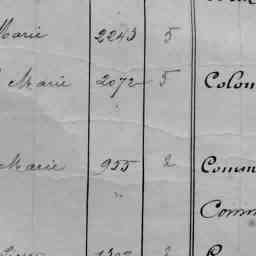 Marie 2243 5
Marie 2072 5 Colon
"
Marie 955 2 Comm
" Comm